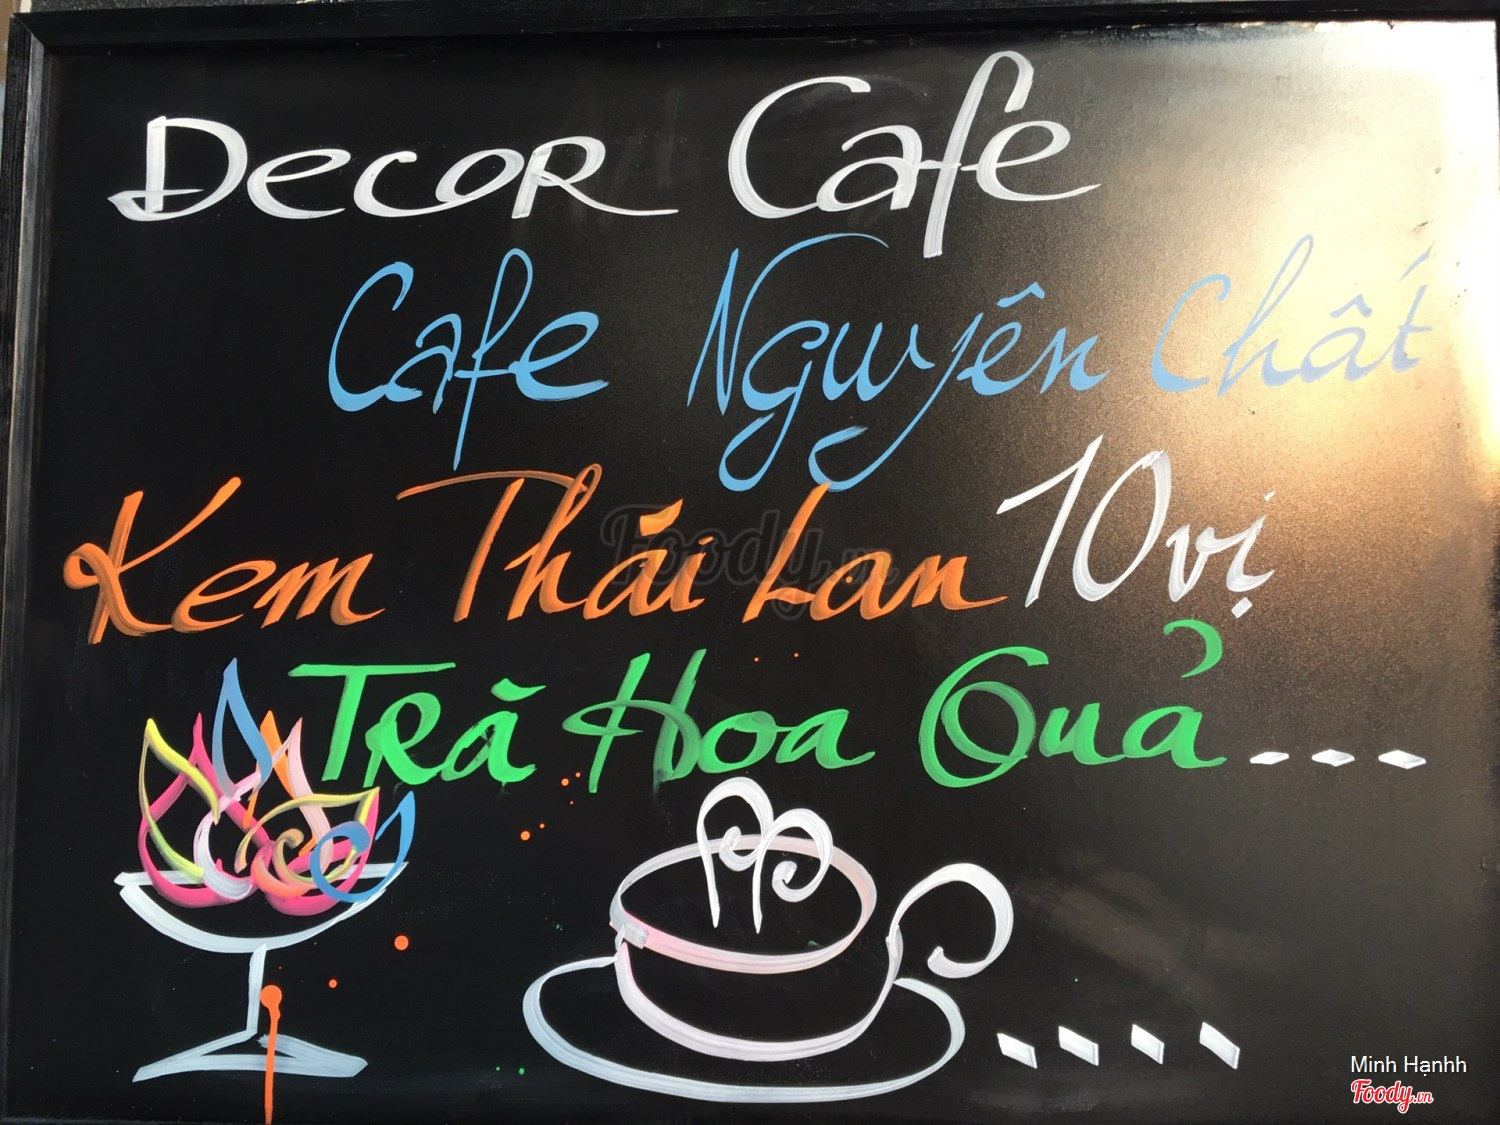 Decor Cafe
Cafe Nguyên Chất
Kem Thái Lan 10 vị
Trà Hoa Quả...
Foody.vn
Minh Hạnhh
Foody.vn